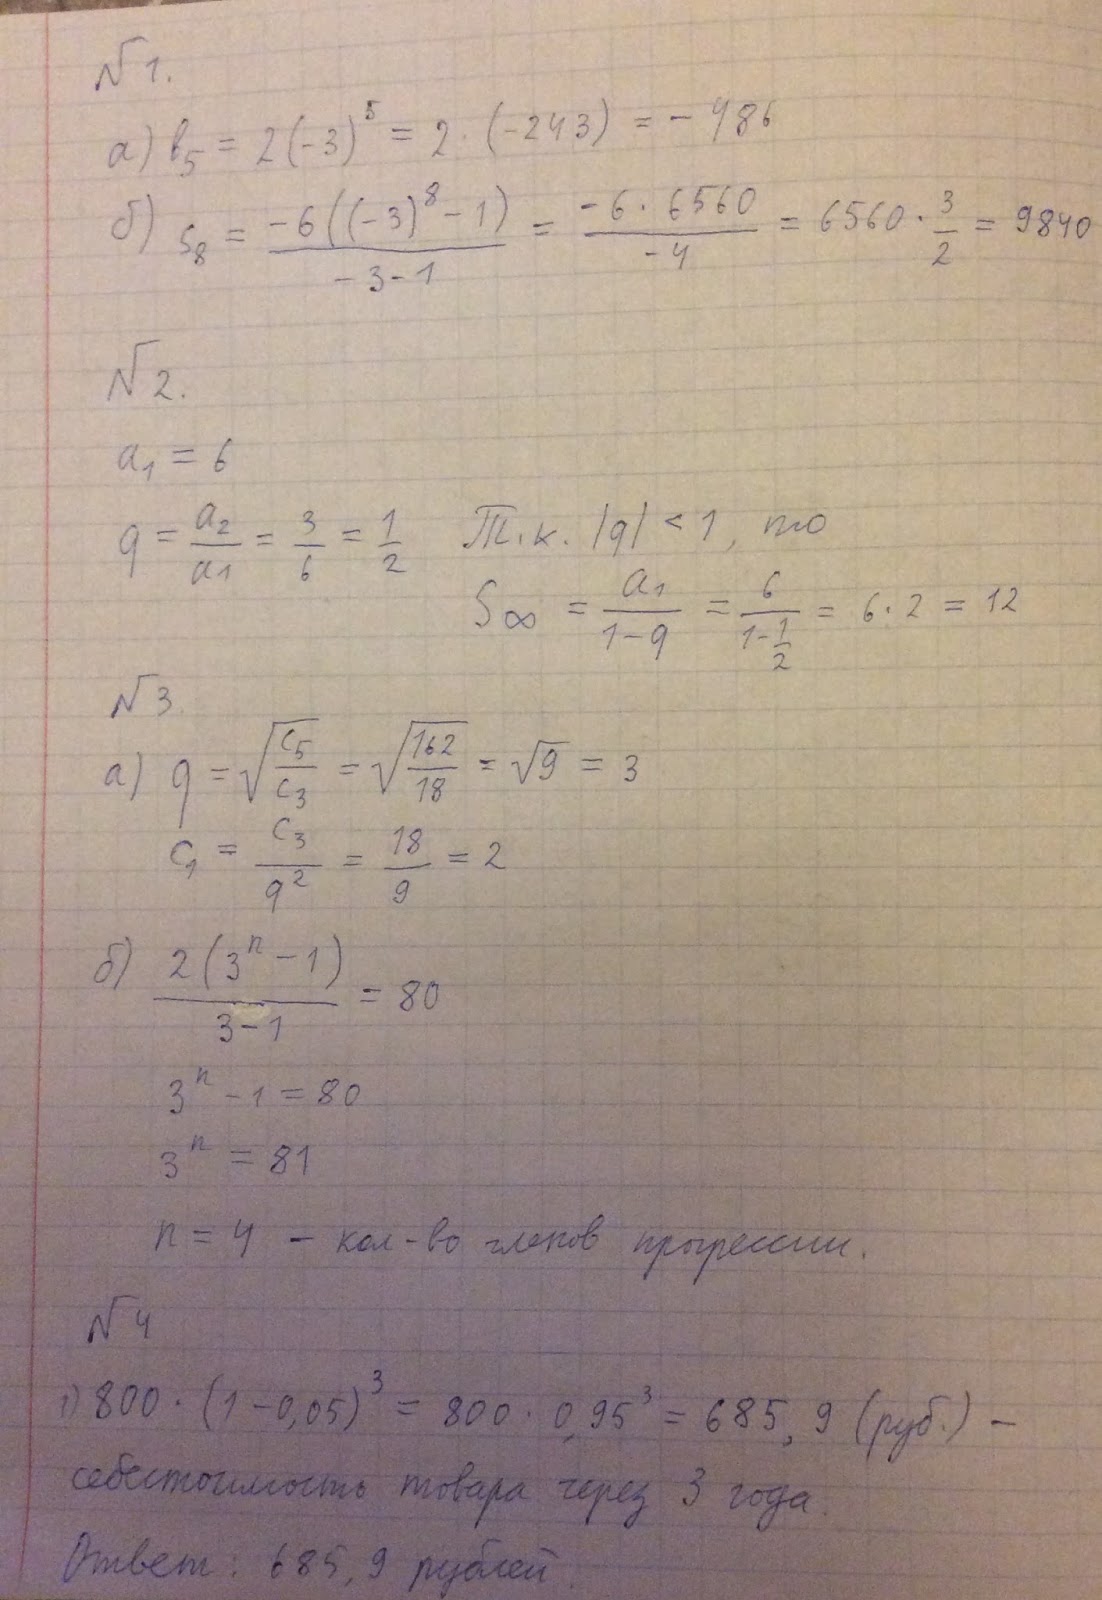 №1.
а) b₅ = 2(-3)⁵ = 2 · (-243) = -486
б) S₈ = -6((-3)⁸ - 1) / -3-1 = -6 · 6560 / -4 = 6560 · 3/2 = 9840
№2.
a₁ = 6
q = a₂/a₁ = 3/6 = 1/2 Т.к. |q| < 1, то
S∞ = a₁/1-q = 6/1-1/2 = 6·2 = 12
№3
а) q = √c₅/c₃ = √162/18 = √9 = 3
c₁ = c₃/q² = 18/9 = 2
б) 2(3ⁿ - 1) / 3-1 = 80
3ⁿ - 1 = 80
3ⁿ = 81
n = 4 - кол-во членов прогрессии.
№4
1) 800 · (1-0,05)³ = 800 · 0,95³ = 685,9 (руб.) -
себестоимость товара через 3 года.
Ответ: 685,9 рублей.